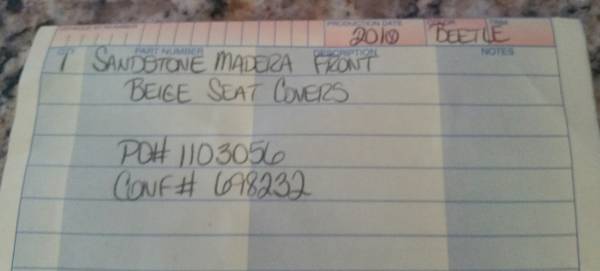 PRODUCTION DATE
2010 BEETLE
QTY PART NUMBER DESCRIPTION NOTES
1 SANDSTONE MADERA FRONT
BEIGE SEAT COVERS
PO# 1103056
CONF# 698232